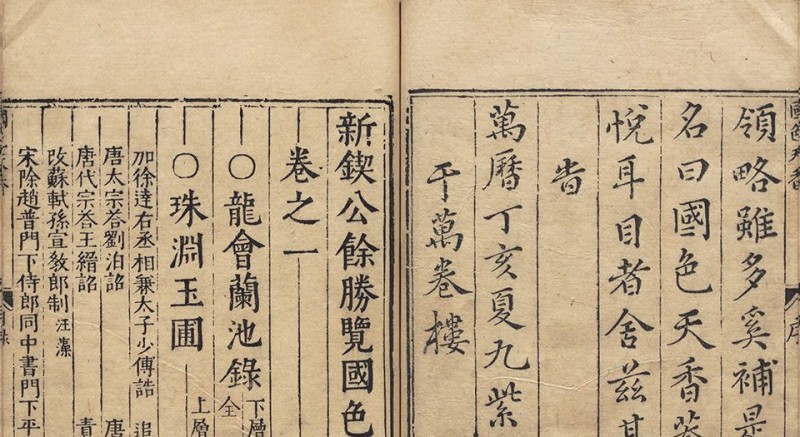 領略雖多奚補是
名曰國色天香蓋
悅耳目者舍茲其
旹
萬曆丁亥夏九紫
于萬卷樓
新鍥公餘勝覽國色
卷之一
○龍會蘭池錄 全 下層
○珠淵玉圃 上層
加徐達右丞相兼太子少傅誥 追
唐太宗荅劉洎詔 唐
唐代宗荅王縉詔 責
改蘇軾孫宣教郎制 汪藻
宋除趙普門下侍郎同中書門下平